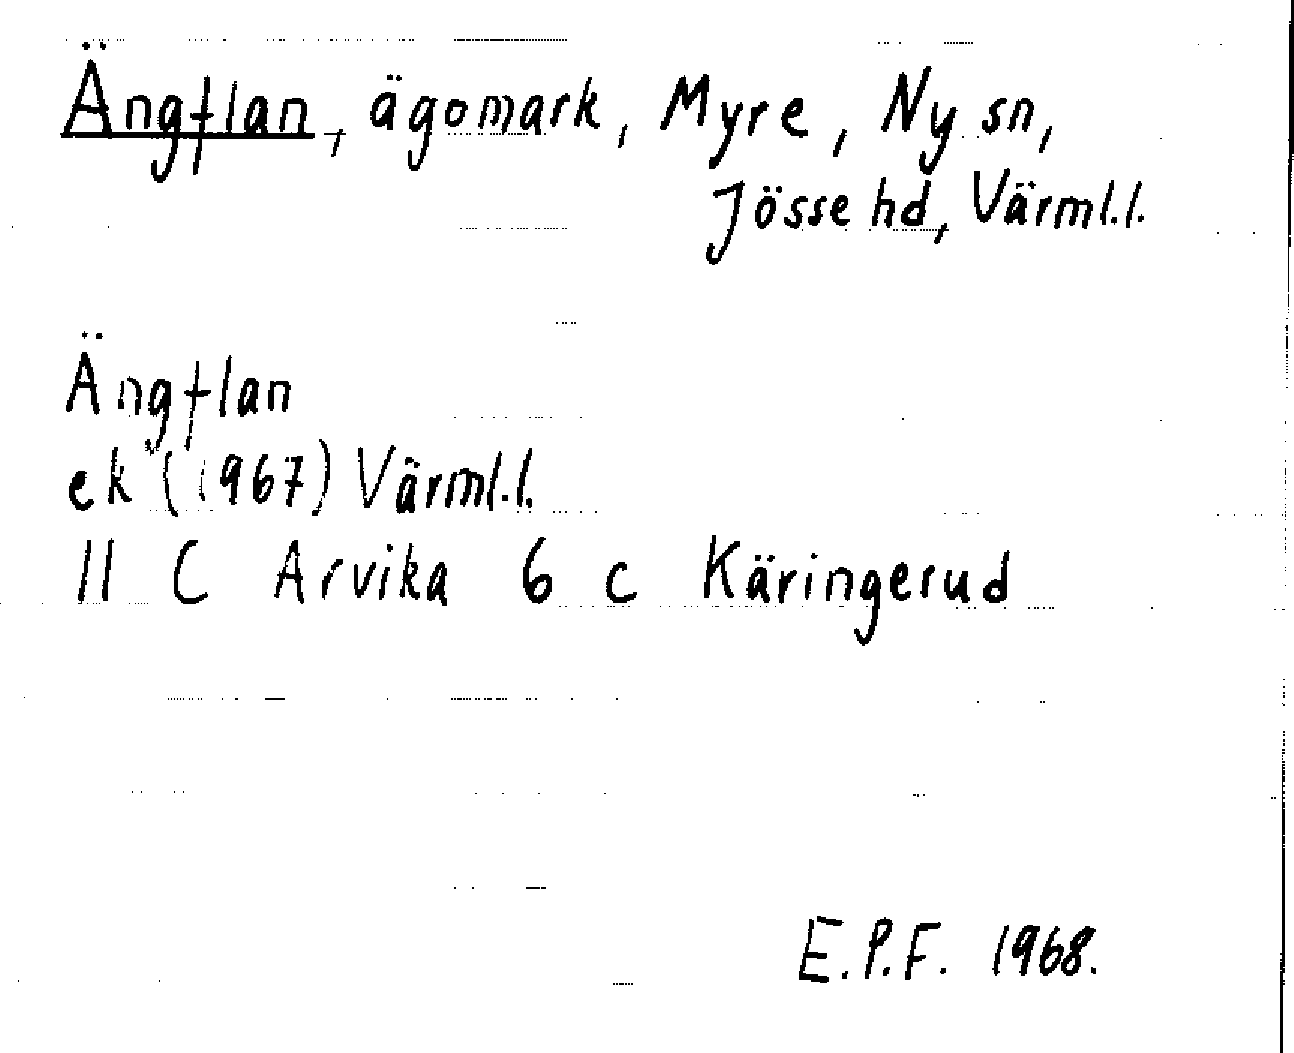 Ängflan, ägomark, Myre, Ny sn,
Jösse hd, Värml.l.
Ängflan
ek (1967) Värml.l.
11 C Arvika 6 c Käringerud
E.P.F. 1968.